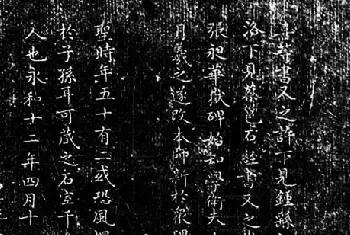 喜等書又之許下見鍾繇
洛下見蔡邕石經書又之
張昶華嶽碑始知學衛夫
月羲之遂改本師新於眾碑
聖時年五十有二或恐風
於子孫耳可藏之石室千
人也永和十二年四月十